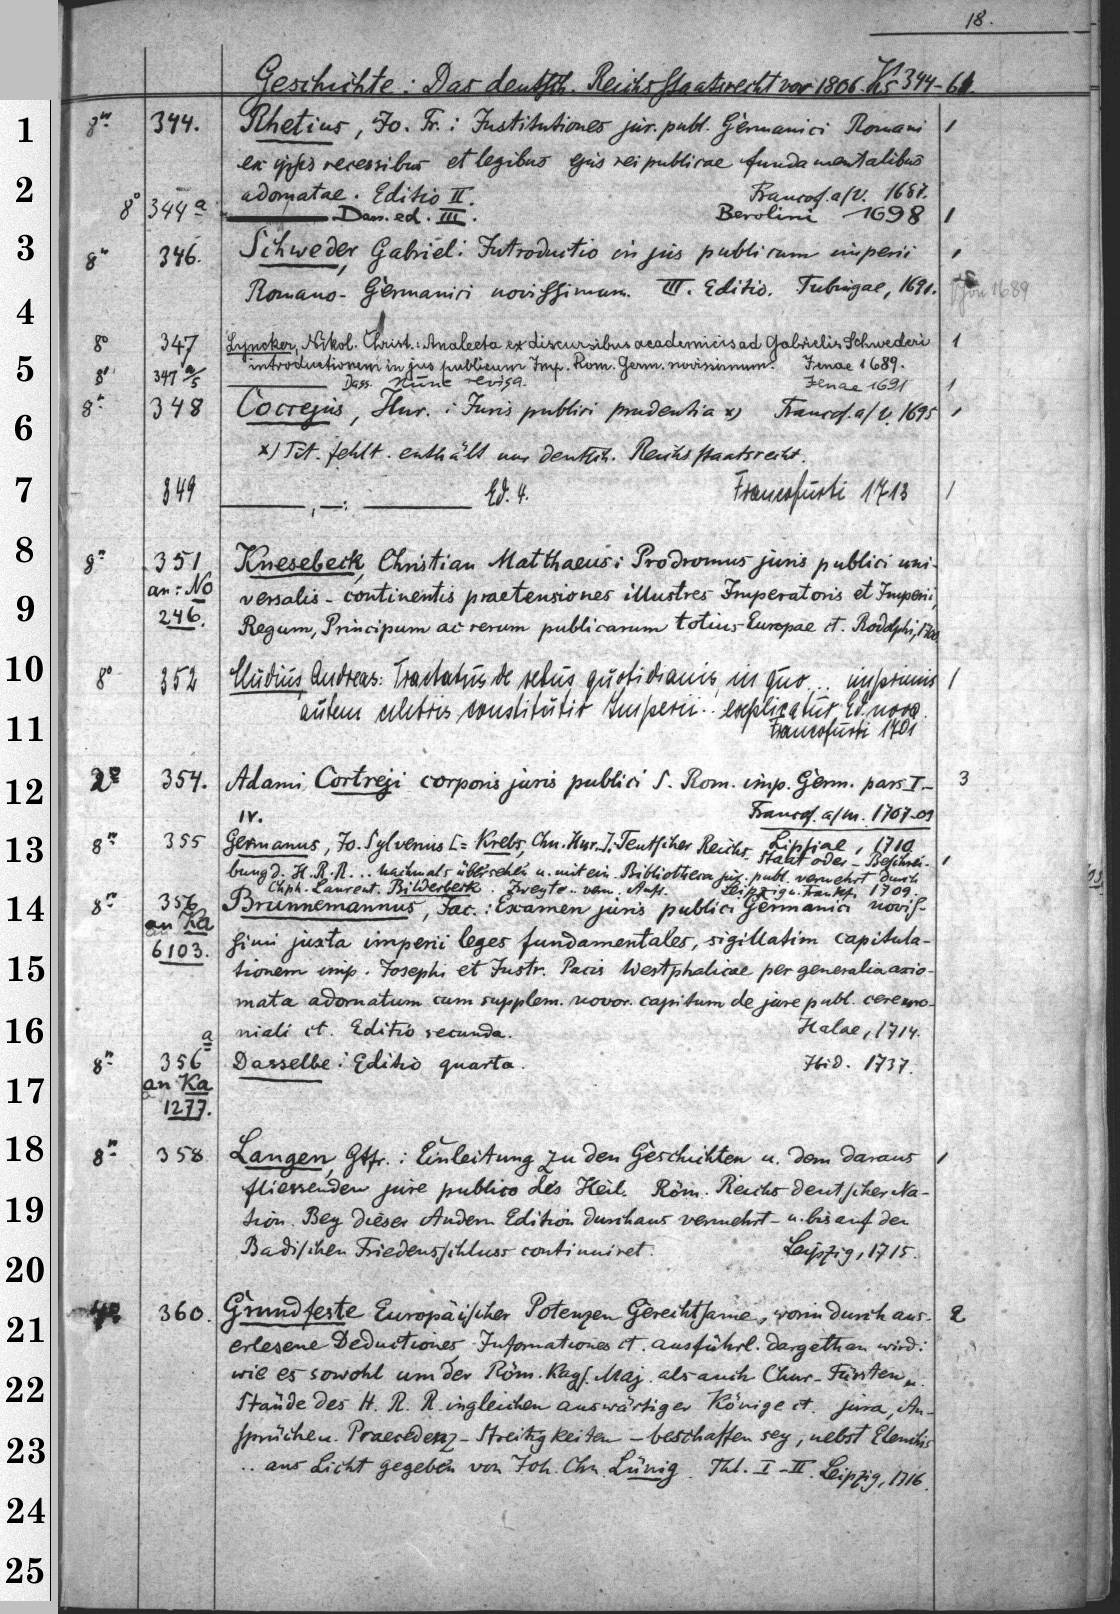 18.
Geschichte: Das deutsch. Reichsstaatsrecht vor 1806. Ks 344-61.
1 8° 344. Rhetius, Jo. Fr.: Institutiones jur. publ. Germanici Romani 1
ex ipsis recessibus et legibus ejus rei publicae fundamentalibus
2 adornatae. Editio II. Francof. a/V. 1687.
8° 344 a Dass. ed. III. Berolini 1698 1
3 8° 346. Schweder, Gabriel: Introductio in jus publicum imperii 1
Romano-Germanici novissimum. III. Editio. Tubingae, 1691. 1689
4
8° 347 Lyncker, Nikol. Christ.: Analecta ex discursibus academicis ad Gabrielis Schwederi 1
5 introductionem in jus publicum Imp. Rom. Germ. novissimum. Jenae 1689.
8° 347 a/5 Dass. nunc revisa. Jenae 1691 1
8° 348 Coccejus, Hnr.: Juris publici prudentia x) Francof. a/V. 1695 1
6
x) Tit. fehlt. enthält nur deutsch. Reichsstaatsrecht.
7 349 —, —: — Ed. 4. Francofurti 1713 1
8 8° 351 Knesebeck, Christian Matthaeus: Prodromus juris publici uni-
an: No versalis - continentis praetensiones illustres Imperatoris et Imperii,
9 246. Regum, Principum ac rerum publicarum totius Europae et. Rodolphi, 1700
10 8° 352 Mudius, Andreas: Tractatus de rebus quotidianis, in quo ... inprimis 1
autem celebris constitutio Imperii .. explicatur Ed. nova.
11 Francofurti 1701
12 2° 354. Adami Cortreji corporis juris publici S. Rom. imp. Germ. pars I- 3
IV. Francof. a/m. 1707-09
Lipsiae, 1710
13 8° 355 Germanus, Jo. Sylvenus [= Krebs, Chn. Hnr.]: Teutscher Reichs Staat oder - Beschrei- 1
bung d. H. R. R. .. nachmals übersehen u. mit ein. Bibliotheca jur. publ. vermehrt durch
Chph. Laurent. Bilderbeck. Zweyte.. verm. Aufl. Leipzig u. Frankf. 1709.
14 8° 356 Brunnemannus, Jac.: Examen juris publici Germanici novis-
an Ka simi juxta imperii leges fundamentales, sigillatim capitula-
6103.
15 tionem imp. Josephi et Instr. Pacis Westphalicae per generalia axio-
mata adornatum cum supplem. novor. capitum de jure publ. ceremo-
16 niali et. Editio secunda. Halae, 1714.
8° 356 a Dasselbe: Editio quarta. Ibid. 1737.
17 an Ka
1277.
18 8° 358 Langen, Gtfr.: Einleitung zu den Geschichten u. dem daraus 1
fliessenden jure publico des Heil. Röm. Reichs deutscher Na-
19 tion. Bey dieser Andern Edition durchaus vermehrt - u. bis auf den
Badischen Friedensschluss continuiret. Leipzig, 1715.
20
4° 360. Grundfeste Europäischer Potenzen Gerechtsame, worin durch aus- 2
21 erlesene Deductiones, Informationes et. ausführl. dargethan wird:
wie es sowohl um der Röm. Kays. Maj. als auch Chur-Fürsten u.
22 Stände des H. R. R. ingleichen auswärtiger Könige et. jura, An-
sprüchen. Praecedenz-Streitigkeiten - beschaffen sey, nebst Elenchis
23 .. ans Licht gegeben von Joh. Chn. Lünig. Thl. I-II. Leipzig, 1716.
24
25